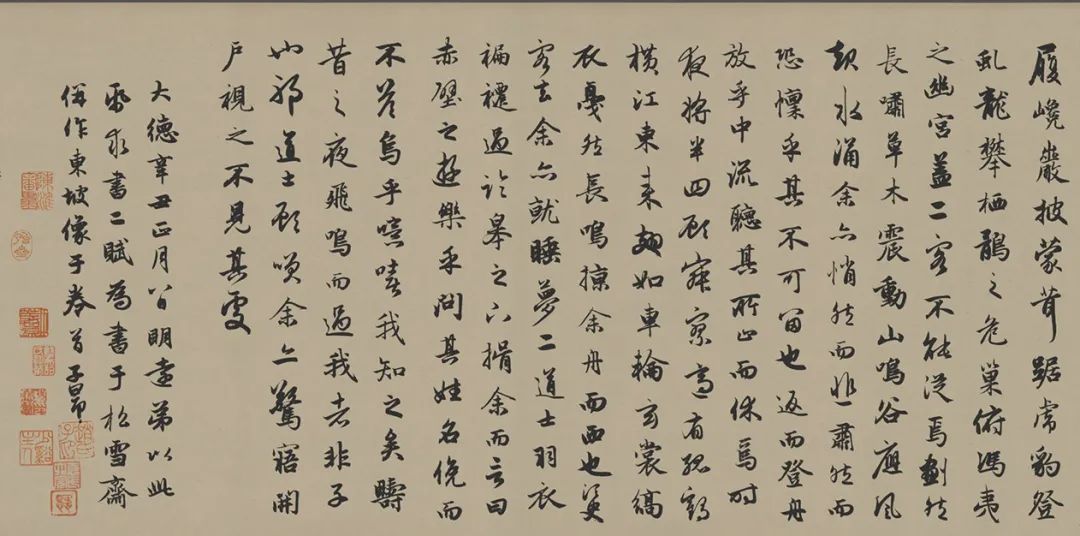 履巉巖披蒙茸踞虎豹登
虬龍攀栖鶻之危巢俯馮夷
之幽宮蓋二客不能從焉劃然
長嘯草木震動山鳴谷應風
起水涌余亦悄然而悲肅然而
恐懍乎其不可留也返而登舟
放乎中流聽其所止而休焉時
夜將半四顧寂寥適有孤鶴
橫江東來翅如車輪玄裳縞
衣戛然長鳴掠余舟而西也須臾
客去余亦就睡夢二道士羽衣
褊褼過臨皋之下揖余而言曰
赤壁之遊樂乎問其姓名俛而
不答烏乎噫嘻我知之矣疇
昔之夜飛鳴而過我者非子
也邪道士顧笑余亦驚寤開
戶視之不見其處
大德辛丑正月八日明遠弟以此
紙求書二賦為書于松雪齋
併作東坡像于卷首子昂